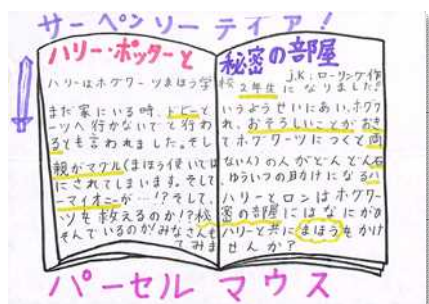 サーペンソーティア！
ハリー・ポッターと秘密の部屋
J.K.ローリング作
ハリーはホグワーツまほう学校2年生になりました！
まだ家にいる時、ドビーというようせいにあい、ホグワ
ーツへ行かないでと行われ、おそろしいことがおき
るとも言われました。そしてホグワーツにつくと両
親がマグル(まほう使いではない人)の人がどんどん石
にされてしまいます。そして、ゆういつの助けになるハ
ーマイオニーが…!?そして、ハリーとロンはホグワー
ツを救えるのか!?秘密の部屋にはなにが
そんでいるのか!みなさんもハリーと共にまほうをかけ
てみませんか？
パーセルマウス